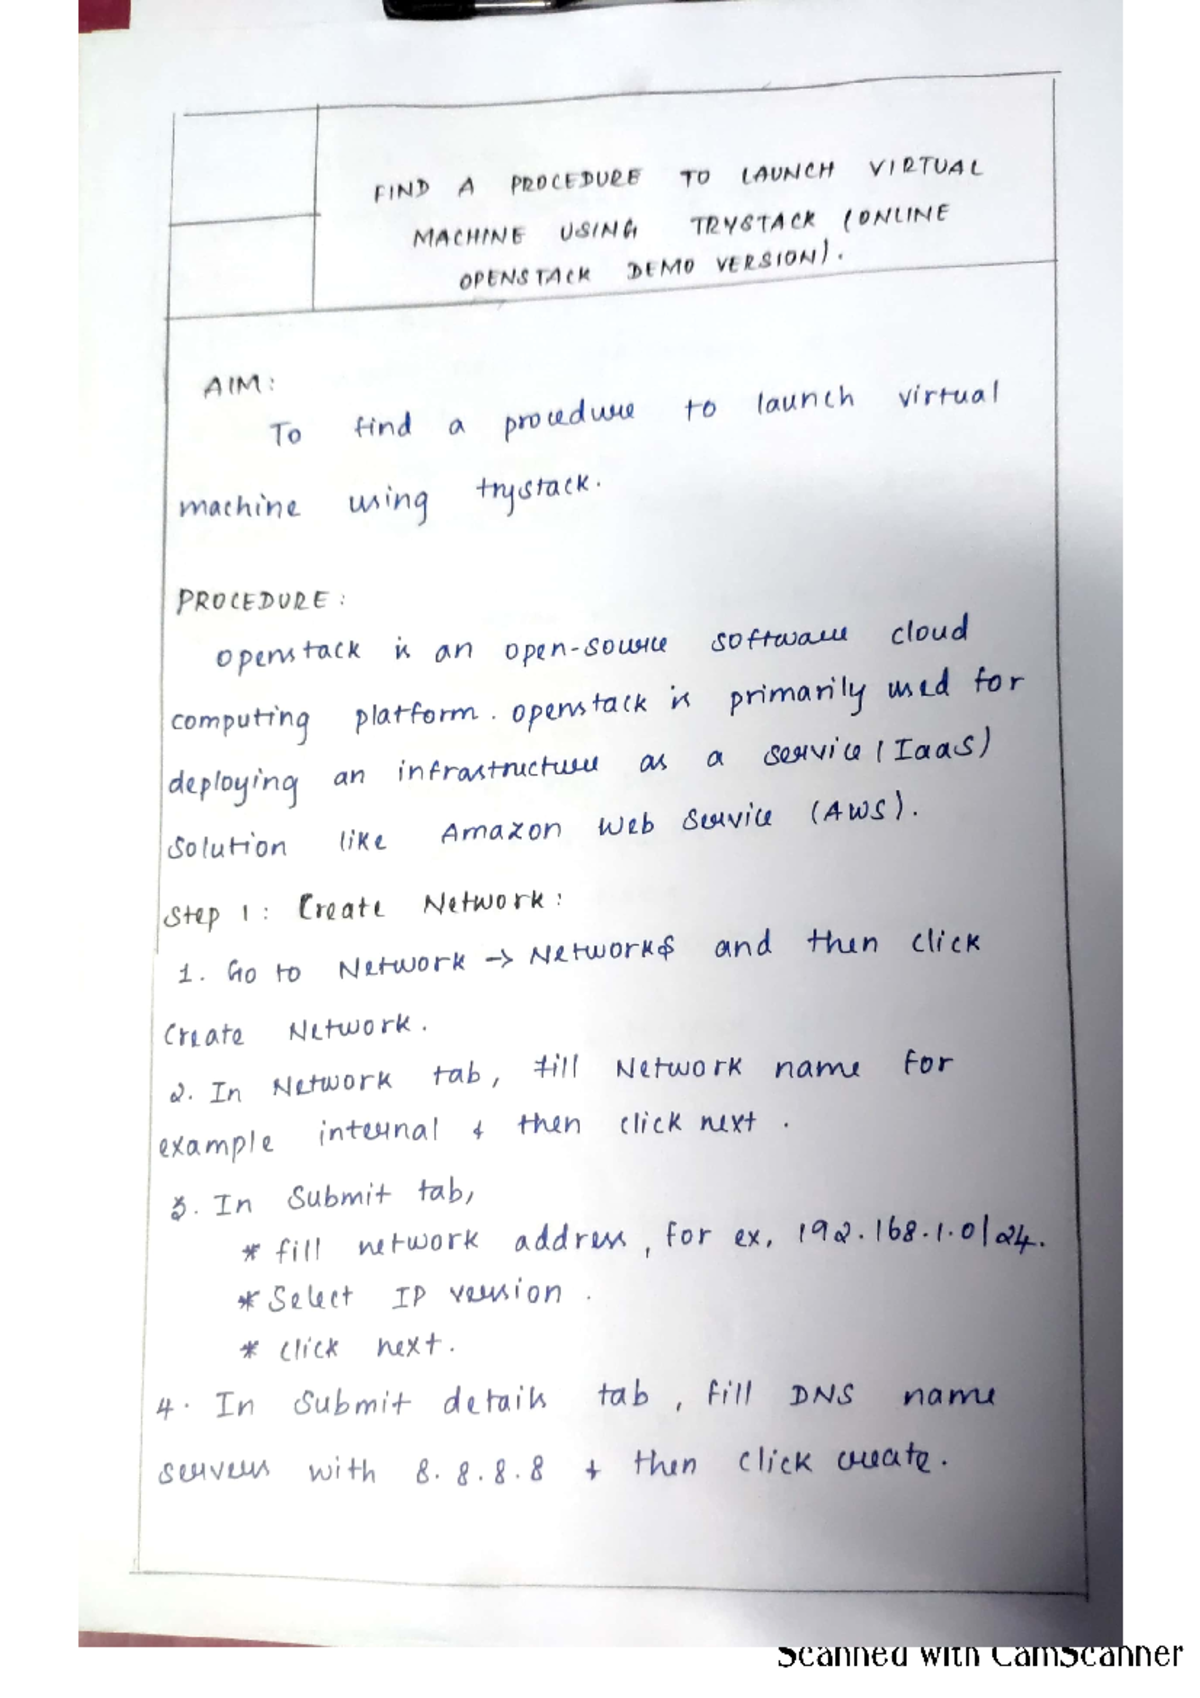 FIND A PROCEDURE TO LAUNCH VIRTUAL
MACHINE USING TRYSTACK (ONLINE
OPENSTACK DEMO VERSION).
AIM:
To find a procedure to launch virtual
machine using trystack.
PROCEDURE:
openstack is an open-source software cloud
computing platform. openstack is primarily used for
deploying an infrastructure as a service (IaaS)
solution like Amazon Web Service (AWS).
Step 1: Create Network:
1. Go to Network → Networks and then click
Create Network.
2. In Network tab, fill Network name for
example internal & then click next.
3. In Submit tab,
* fill network address, for ex, 192.168.1.0/24.
* Select IP version.
* click next.
4. In Submit details tab, fill DNS name
servers with 8.8.8.8 & then click create.
Scanned with CamScanner